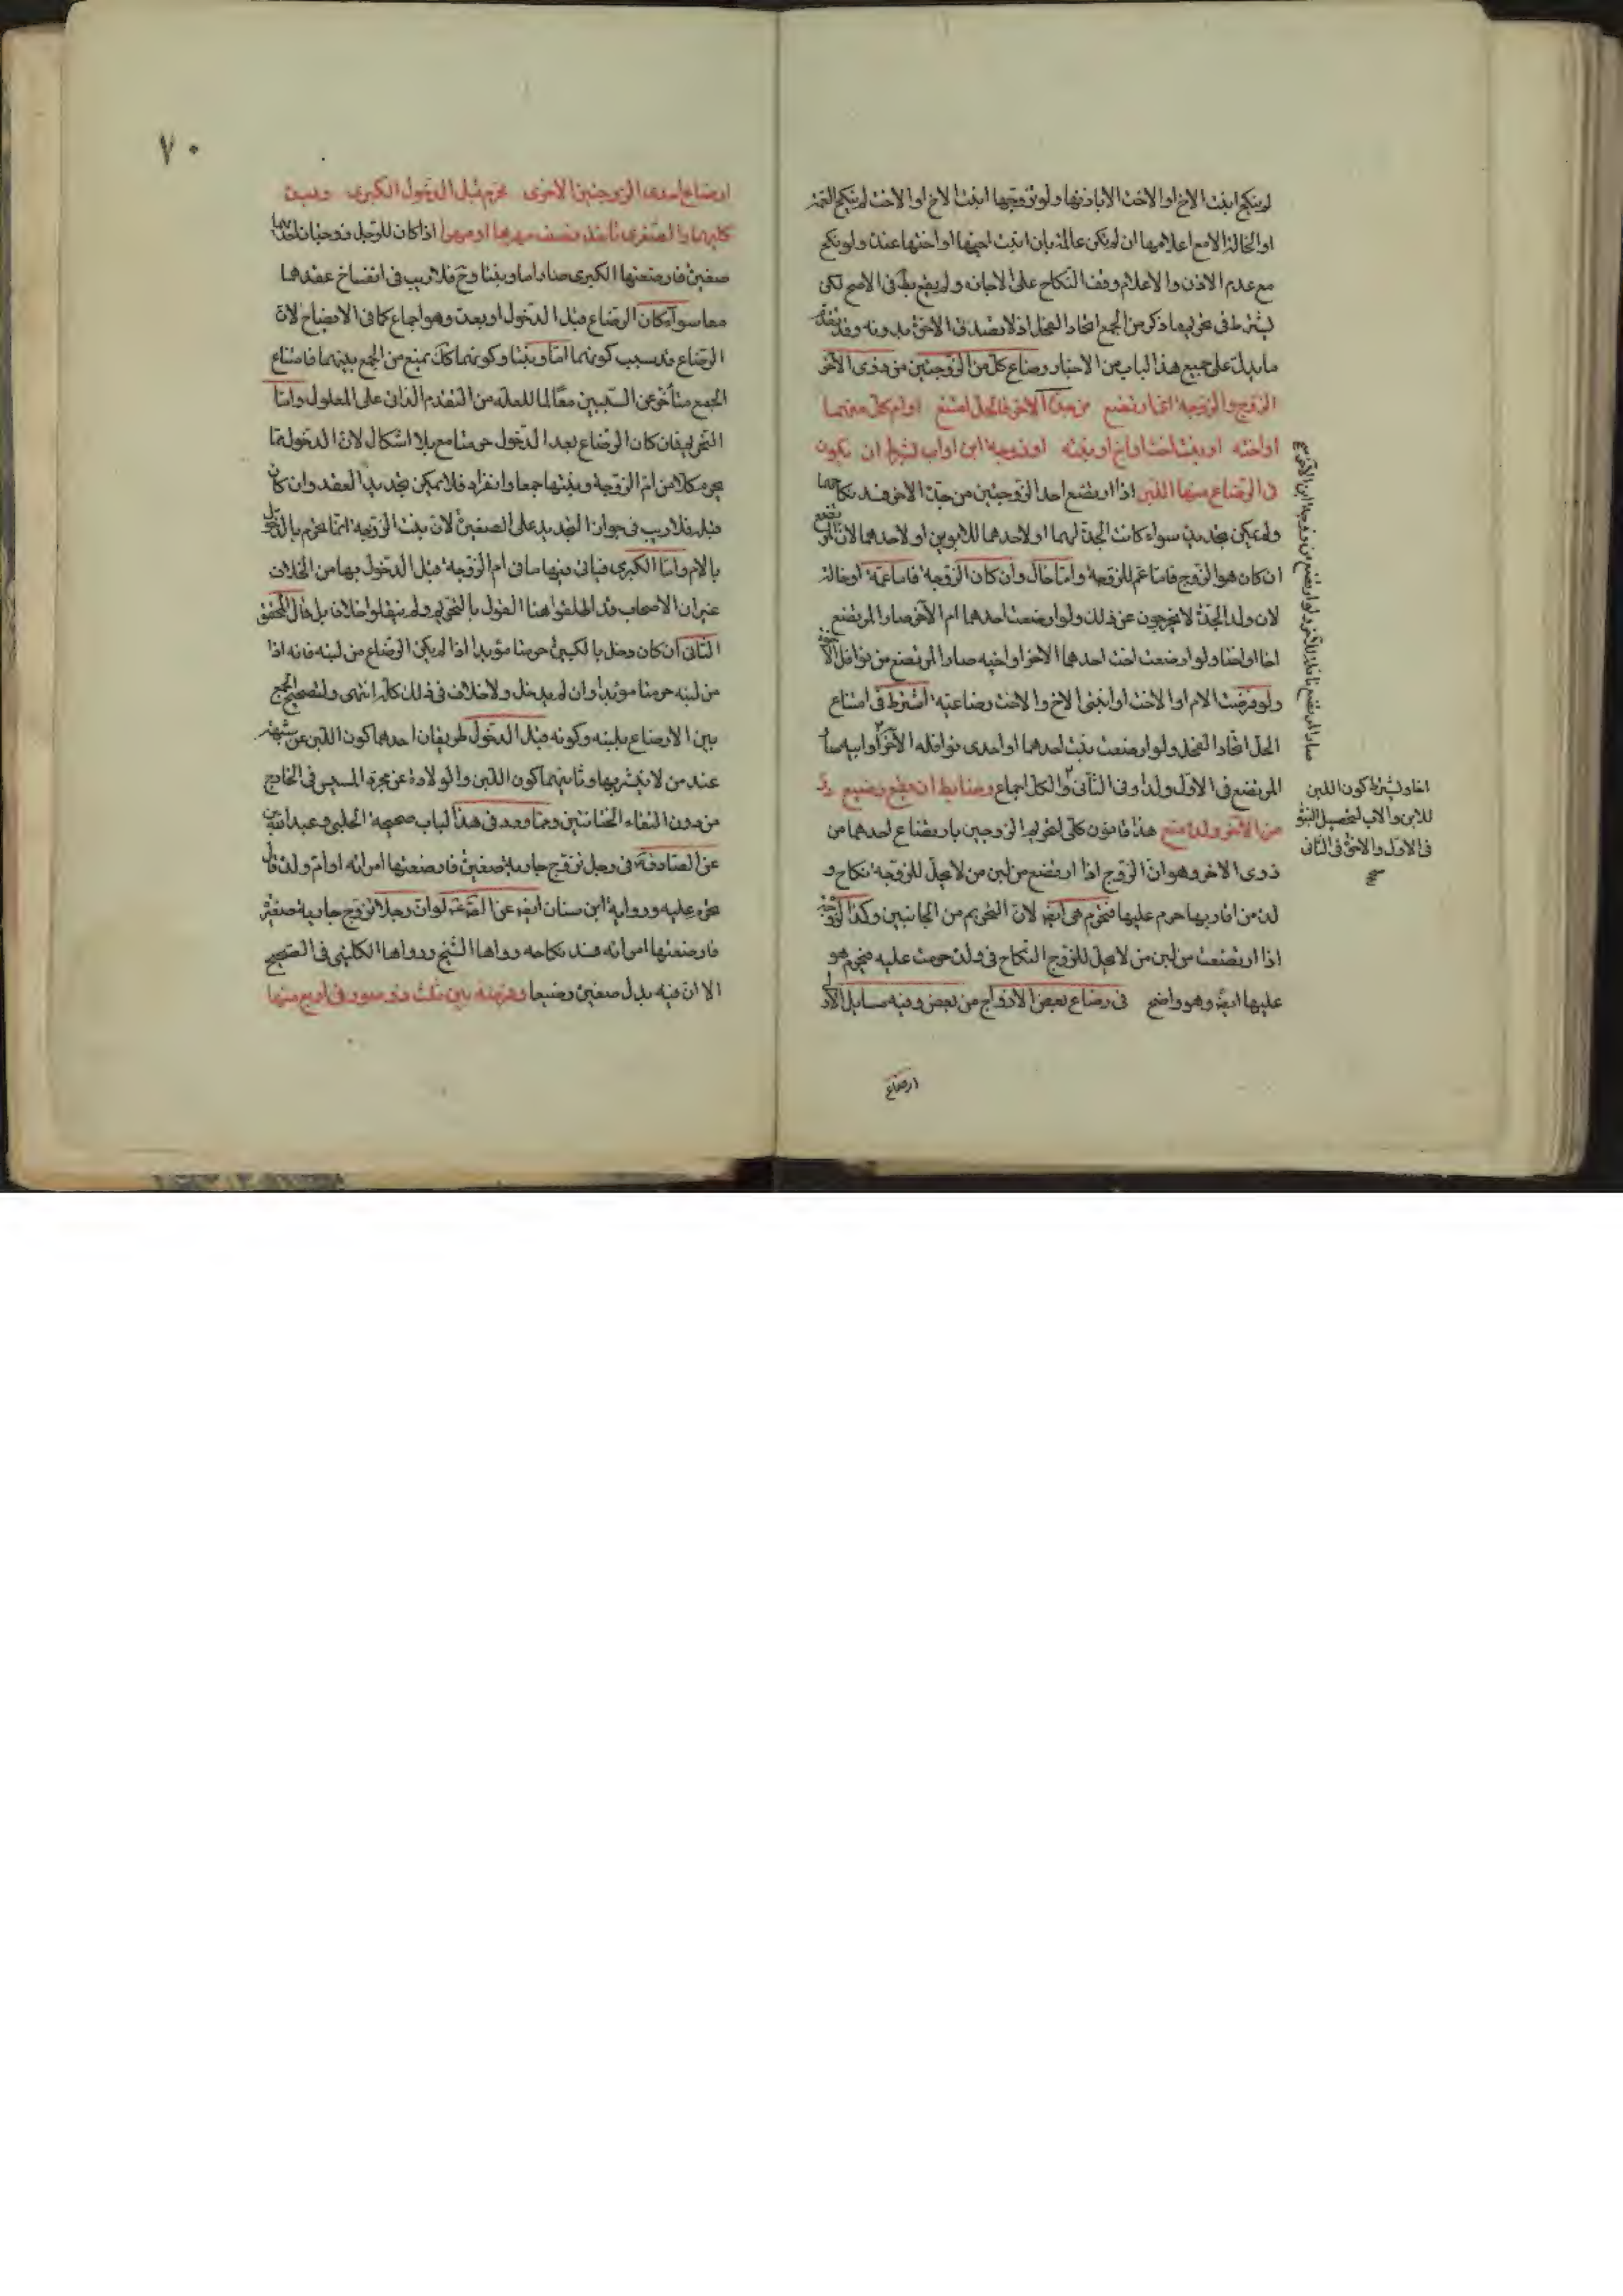 لم ينكح ابنت الاخ او الاخت الا باذنها ولو تزوجها ابنت الاخ او الاخت لم ينكح العمة
او الخالة الا مع اعلامها ان لم يكن عالمة بان ابنت اخيها او اختها عنده ولو نكح
مع عدم الاذن والاعلام وقف النكاح على الاجازه ولم يقع بط في الاصح لكن
يشترط في تحريمها ذكر من الجمع اتحاد الفحل اذ لا يصدق الاخوة بدونه وقد
ما يدل على جميع هذا الباب من الاخبار رضاع كل من الزوجتين من ذوى الآخر
الزوج والزوجة اذا ارتضع من جدة الآخر فالحل امتنع او ام كل منهما
او اخته او بنت اخت او اخ او بنته او زوجة ابن او اب بشرط ان يكون
في الرضاع منها اللبن اذا ارتضع احد الزوجين من جدة الاخر فسد نكاحهما
ولم يمكن تجديده سواء كانت الجدة لهما او لاحدهما للابوين او لاحدهما لان المرتضع
ان كان هو الزوج فاما عم للزوجة واما خال وان كان الزوجة فاما عمة او خالة
لان ولد الجدة لا يخرجون عن ذلك ولو ارضعت احدهما ام الآخر صار المرتضع
اخا او اختا ولو ارضعت اخت احدهما الاخر او اخيه صار المرتضع من نوافل الاخوة
ولو فرضت الام او الاخت او ابنتى الاخ والاخت رضاعية اشترط في امتناع
الحل اتحاد الفحل ولو ارضعت بنت احدهما او احدى نوافله الآخر او ابيه صار
المرتضع في الاول ولدا وفي الثاني والكل اجماع وضابط ان يقع رضيع
من الآخر ولده منع هذا قانون كلى لتحريم الزوجين بارتضاع احدهما من
ذوى الاخر وهو ان الزوج اذا ارتضع من لبن من لا يحل للزوجة نكاح و
لده من اقاربها حرم عليها فتحرم هى ايضا لان التحريم من الجانبين وكذا الزوجة
اذا ارتضعت من لبن من لا يحل للزوج النكاح في ولده حرمت عليه فيحرم هو
عليها ايضا وهو واضح في رضاع بعض الازواج من بعض وفيه مسايل الاولى
ارضاع
اخا ويشترط كون اللبن
للابن والاب لتحصيل البنوة
في الاول والاخوة في الثاني
صح
٧٠
ارضاع احدى الزوجتين الاخرى محرم قبل الدخول الكبرى
كليهما والصغرى تاخذ نصف مهرها او مهرا اذا كان للرجل زوجتان احدهما
صغيرة فارضعتها الكبرى صارا اما وبنتا وح فلا ريب في انفساخ عقدهما
معا سواء كان الرضاع قبل الدخول او بعده وهو اجماع كما في الايضاح لان
الرضاع قد سبب كونهما اما وبنتا وكونهما كك يمنع من الجمع بينهما فامتناع
الجمع متأخر عن السببين معا لما للعلة من التقدم الذاتي على المعلول واما
التحريم فان كان الرضاع بعد الدخول حرمتا مع بلا اشكال لان الدخول مما
يحرم كلا من ام الزوجة وبنتها جمعا وانفرادا فلا يمكن تجديد العقد وان كان
قبله فلا ريب في جواز التجديد على الصغيرة لان بنت الزوجة انما تحرم بالدخول
بالام واما الكبرى فياتي فيها ما في ام الزوجة قبل الدخول بها من الخلاف
غير ان الاصحاب قد اطلقوا هنا القول بالتحريم ولم ينقلوا خلاف بل قال المحقق
الثاني ان كان دخل بالكبيرة حرمتا مؤبدا اذا لم يكن الرضاع من لبنه فانه اذا
من لبنه حرمتا مؤبدا وان لم يدخل ولا خلاف في ذلك كله انتهى ولتصحيح الجمع
بين الارضاع بلبنه وكونه قبل الدخول طريقان احدهما كون اللبن عن شبهة
عند من لا ينشر بها وثانيهما كون اللبن والولادة عن مجرد المسيس في الخارج
من دون التقاء الختانتين ومما ورد في هذا الباب صحيحة الحلبي وعبد الله
عن الصادق في رجل تزوج جارية صغيرة فارضعتها امراته او ام ولده قال
تحرم عليه ورواية ابن سنان ايضا عن الصادق لو ان رجلا تزوج جارية صغيرة
فارضعتها امراته فسد نكاحه رواها الشيخ ورواها الكليني في الصحيح
الا ان فيه بدل صغيرة رضيعا